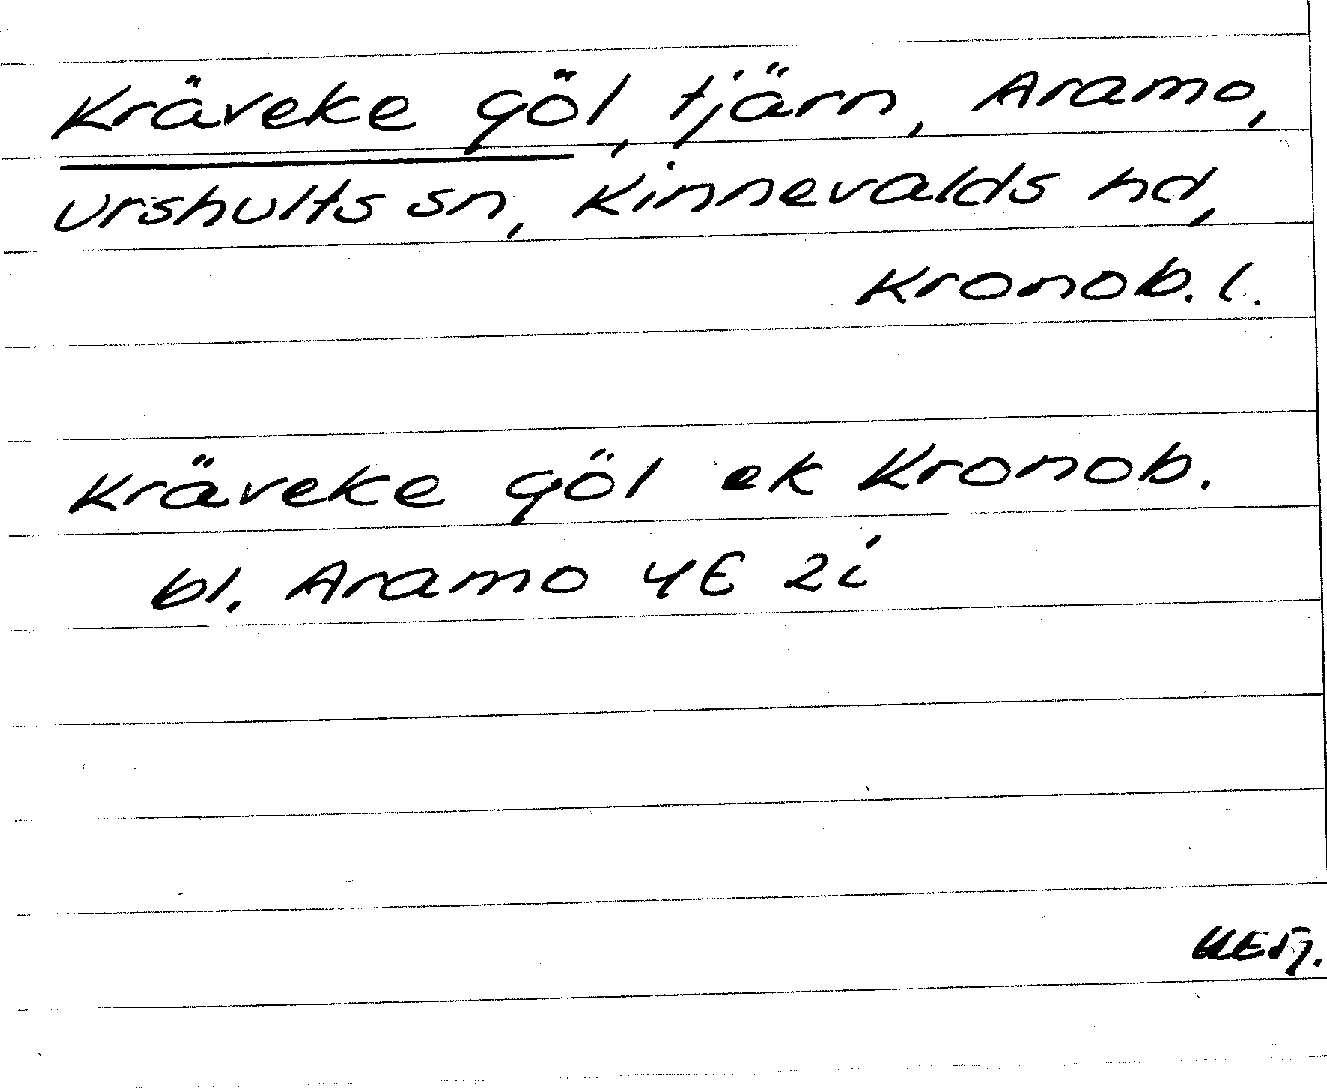 Kräveke göl, tjärn, Aramo,
Urshults sn, Kinnevalds hd,
Kronob. l.
Kräveke göl ek Kronob.
bl. Aramo 4E 2i